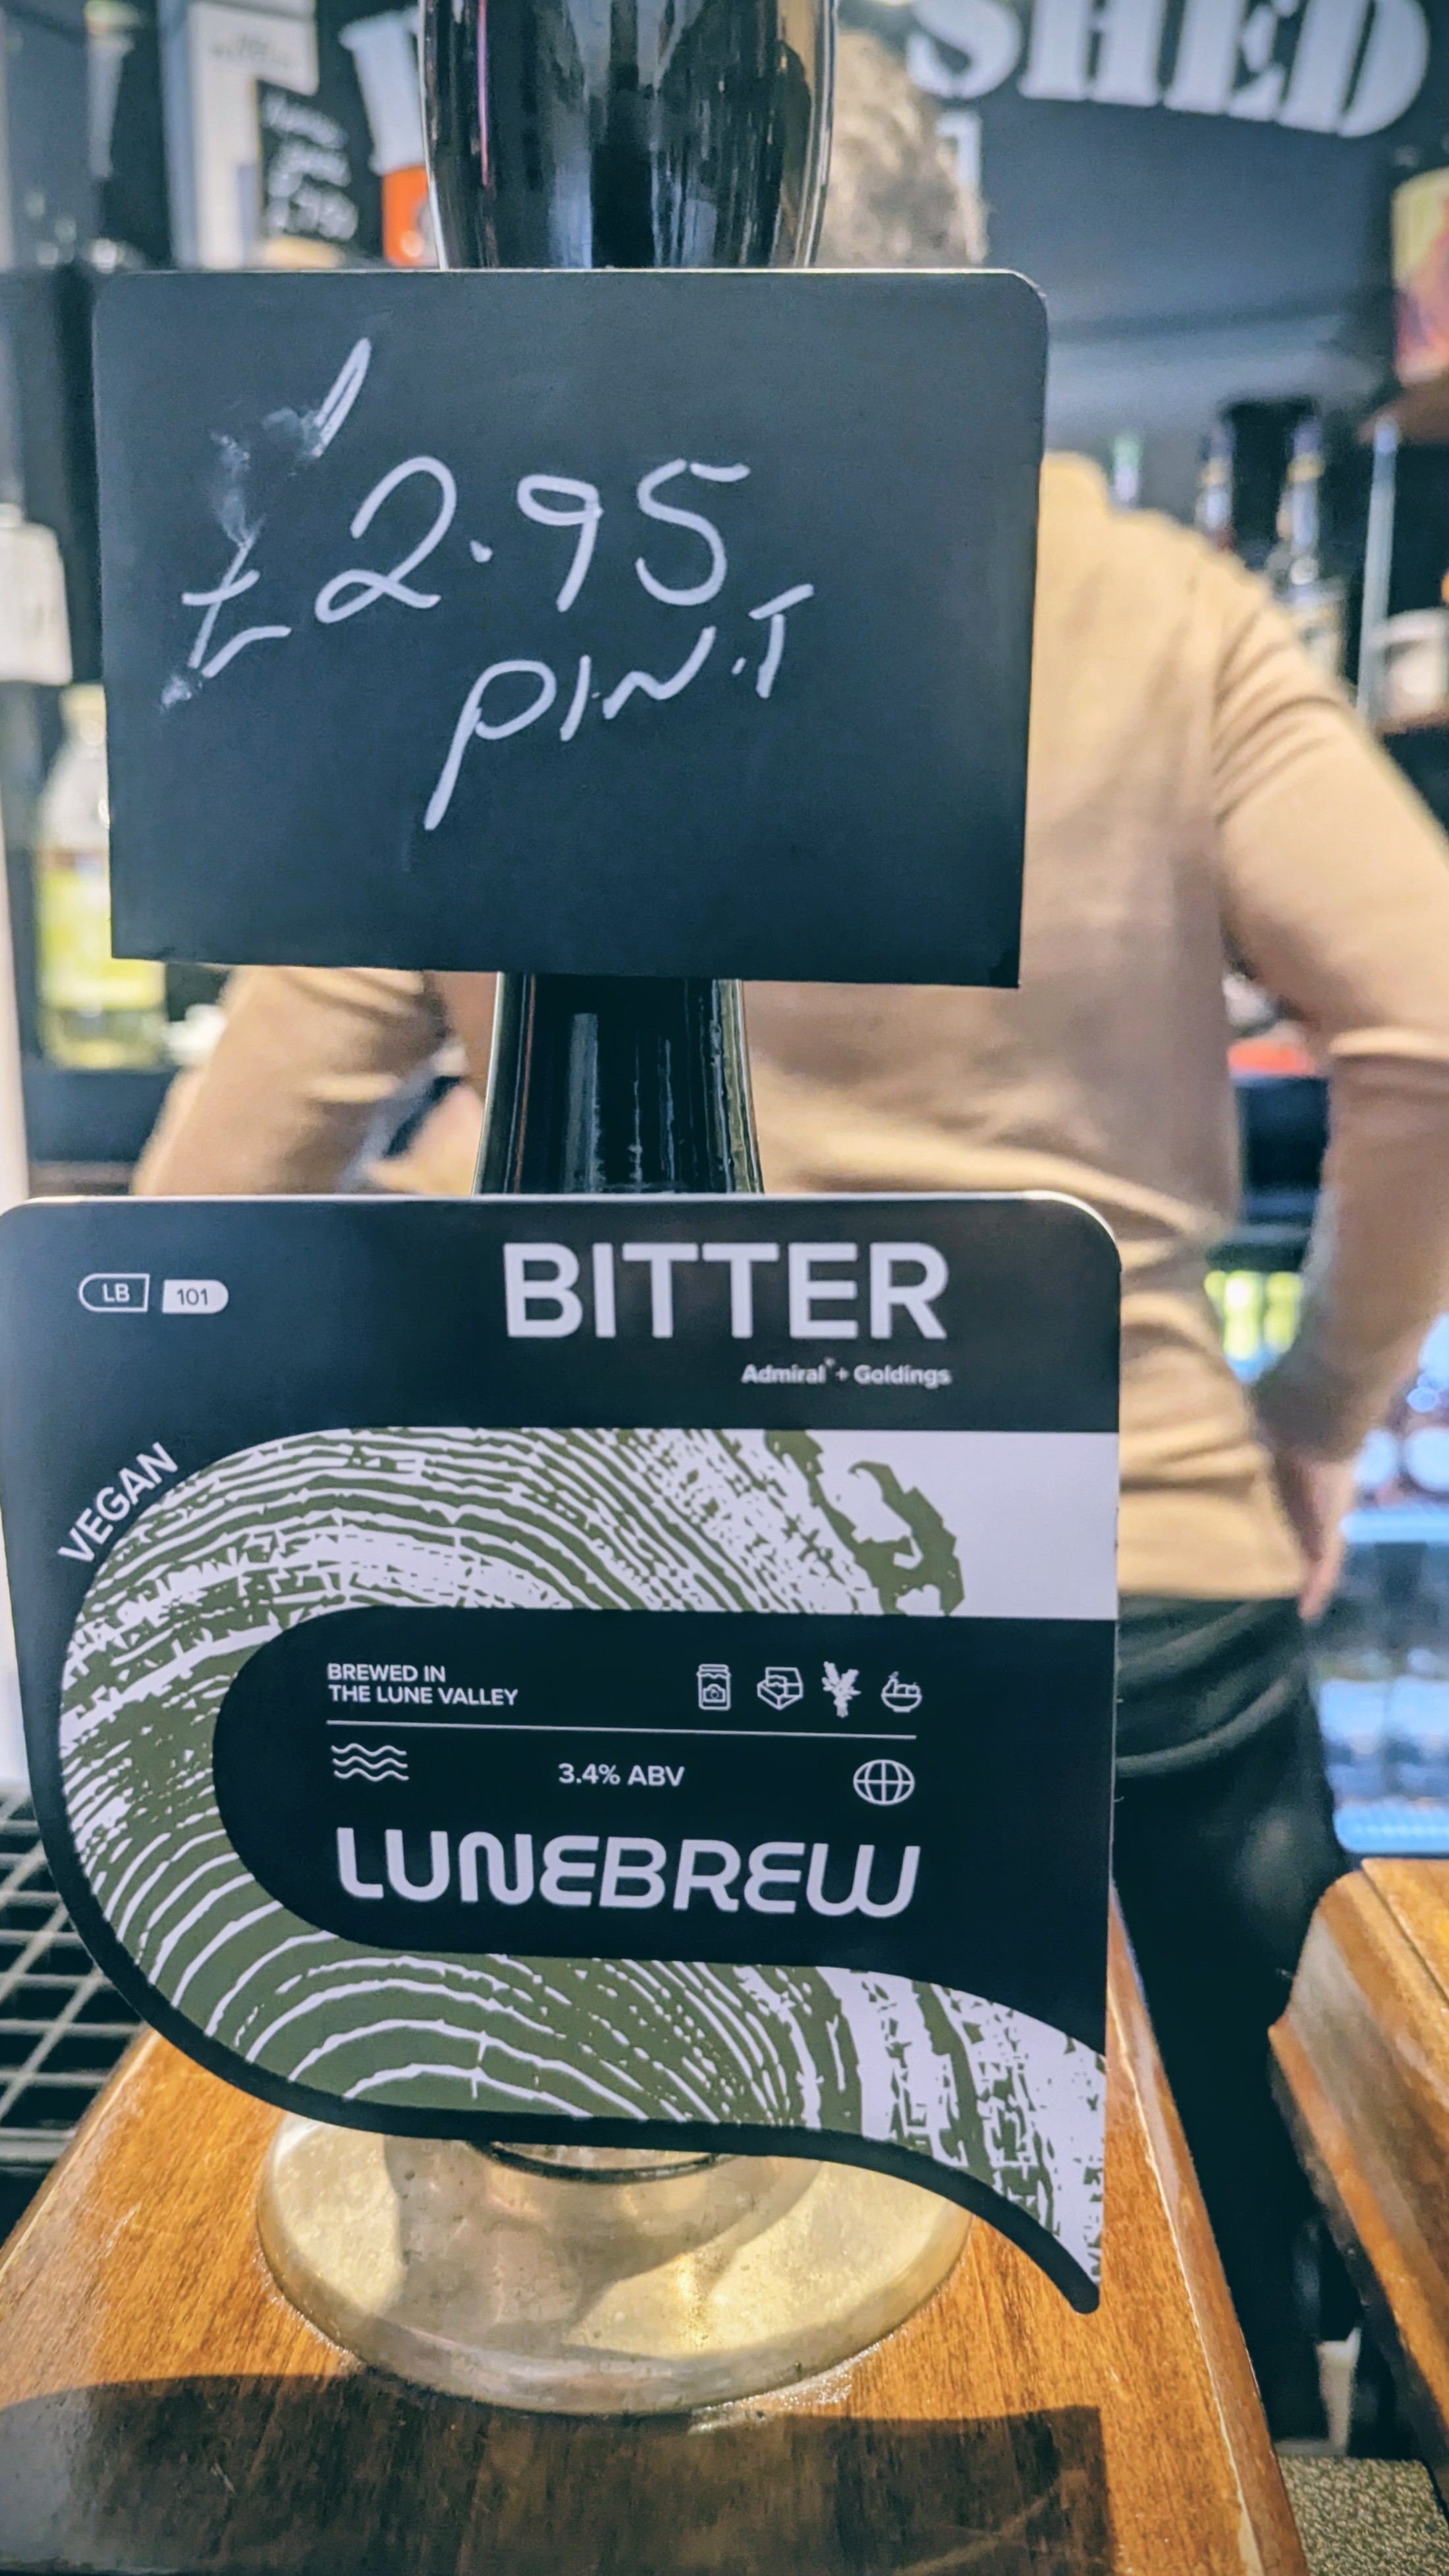 SHED
£2.95
PINT
LB 101
BITTER
Admiral + Goldings
VEGAN
BREWED IN
THE LUNE VALLEY
3.4% ABV
LUNEBREW